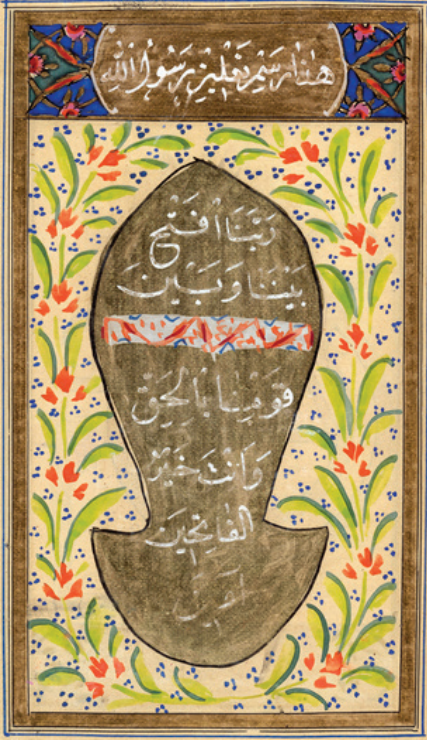 هٰذَا رَسْمِ نَعْلَيْنِ رَسُولُ الله
رَبَّنَا افْتَحْ
بَيْنَنَا وَبَيْنَ
قَوْمِنَا بِالْحَقِّ
وَاَنْتَ خَيْرُ
الْفَاتِحِينَ